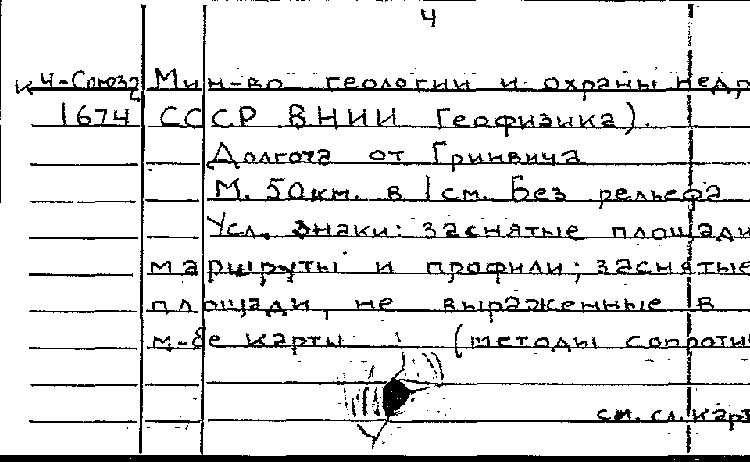 4
К 4-Союза Мин-во геологии и охраны недр
1674 СССР ВНИИ Геофизика).
Долгота от Гринвича
М. 50км. в 1см. Без рельефа
Усл. знаки: заснятые площади
маршруты и профили; заснятые
площади, не выраженные в
м-бе карты (методы сопроти
см. сл. карт